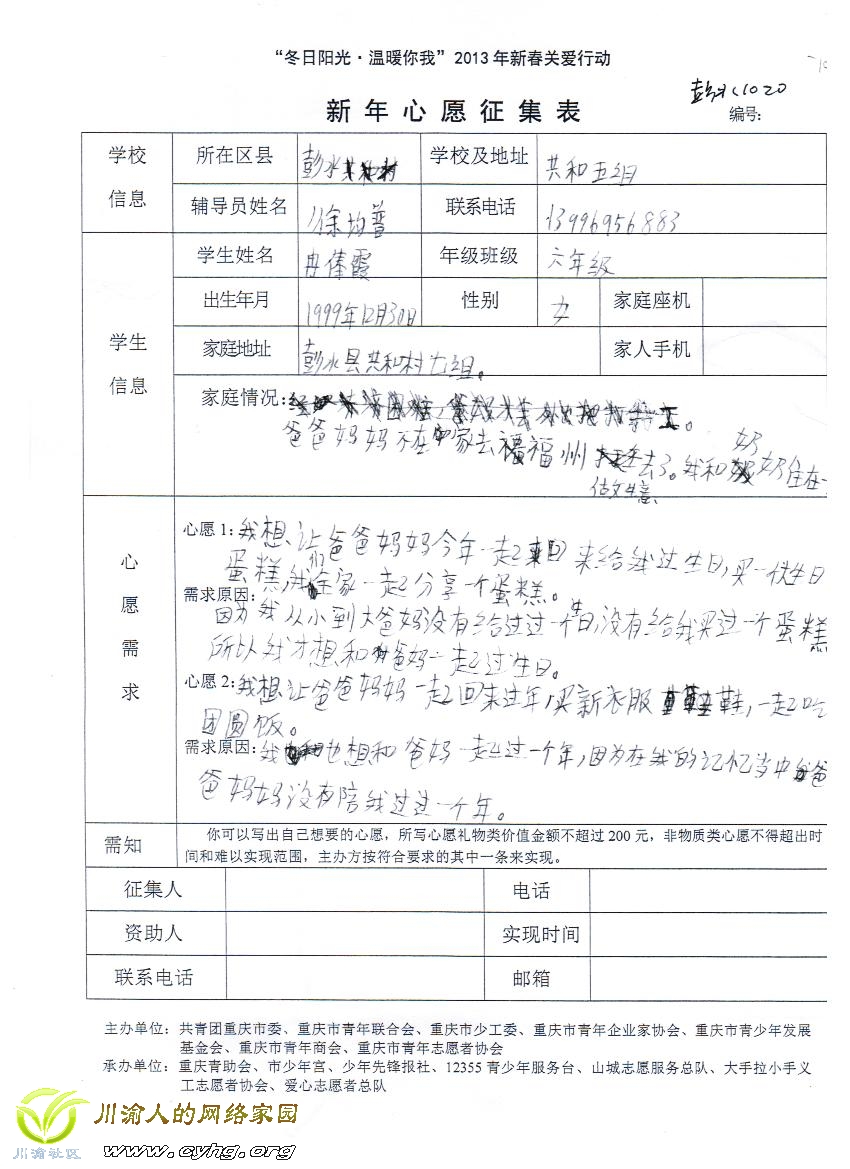 “冬日阳光·温暖你我”2013年新春关爱行动
彭水1020
新年心愿征集表
编号:
学校信息 所在区县 彭水 学校及地址 共和五组
辅导员姓名 徐均普 联系电话 13996956883
学生信息 学生姓名 冉蒨霞 年级班级 六年级
出生年月 1999年12月30日 性别 女 家庭座机
家庭地址 彭水县共和村七组。 家人手机
家庭情况:
爸爸妈妈不在家去福州去了。我和奶奶住在
做生意
心愿需求
心愿1:我想让爸爸妈妈今年一起回来给我过生日,买一个生日
蛋糕,我们全家一起分享一个蛋糕。
需求原因:
因为我从小到大爸妈没有给过过一个生日,没有给我买过一个蛋糕
所以我才想和爸妈一起过生日。
心愿2:我想让爸爸妈妈一起回来过年,买新衣服鞋,一起吃
团圆饭。
需求原因:我也想和爸妈一起过一个年,因为在我的记忆当中爸
爸妈妈没有陪我过过一个年。
需知 你可以写出自己想要的心愿,所写心愿礼物类价值金额不超过200元,非物质类心愿不得超出时
间和难以实现范围,主办方按符合要求的其中一条来实现。
征集人 电话
资助人 实现时间
联系电话 邮箱
主办单位:共青团重庆市委、重庆市青年联合会、重庆市少工委、重庆市青年企业家协会、重庆市青少年发展
基金会、重庆市青年商会、重庆市青年志愿者协会
承办单位:重庆青助会、市少年宫、少年先锋报社、12355青少年服务台、山城志愿服务总队、大手拉小手义
工志愿者协会、爱心志愿者总队
川渝人的网络家园
川渝社区 www.cyhg.org